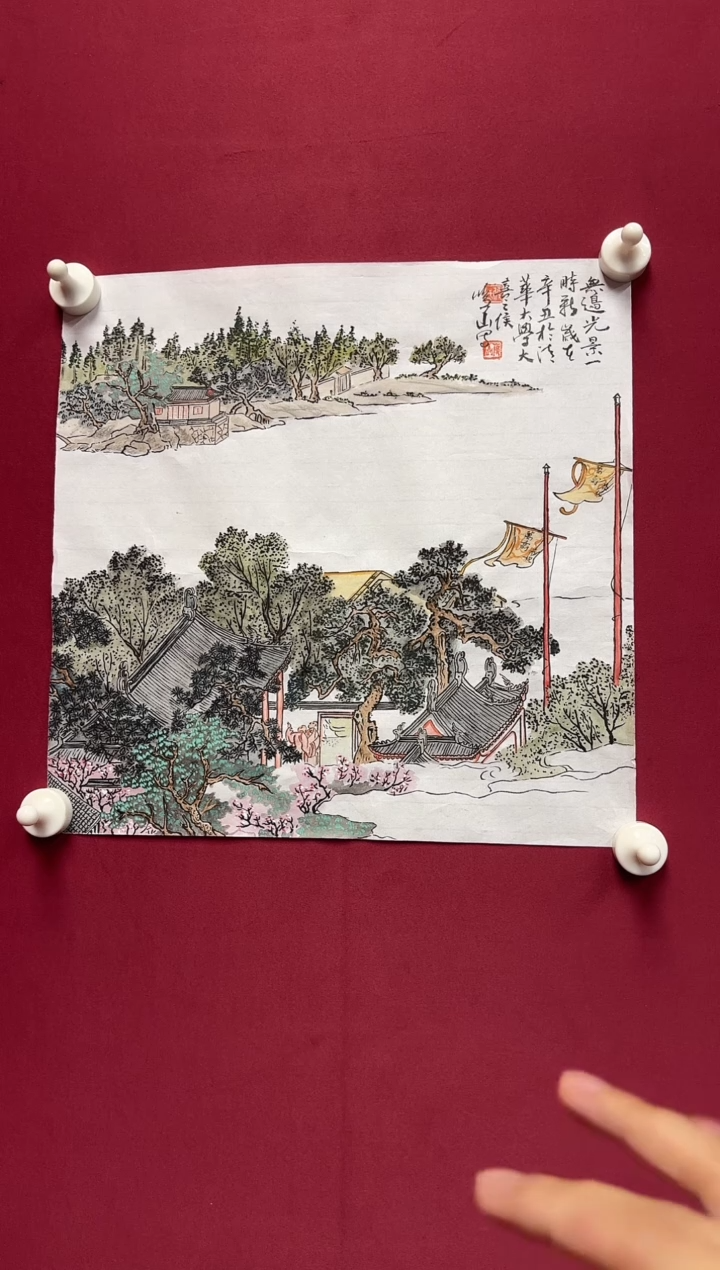 無邊光景一
時新歲在
辛丑於清
華大學大
喜之侯